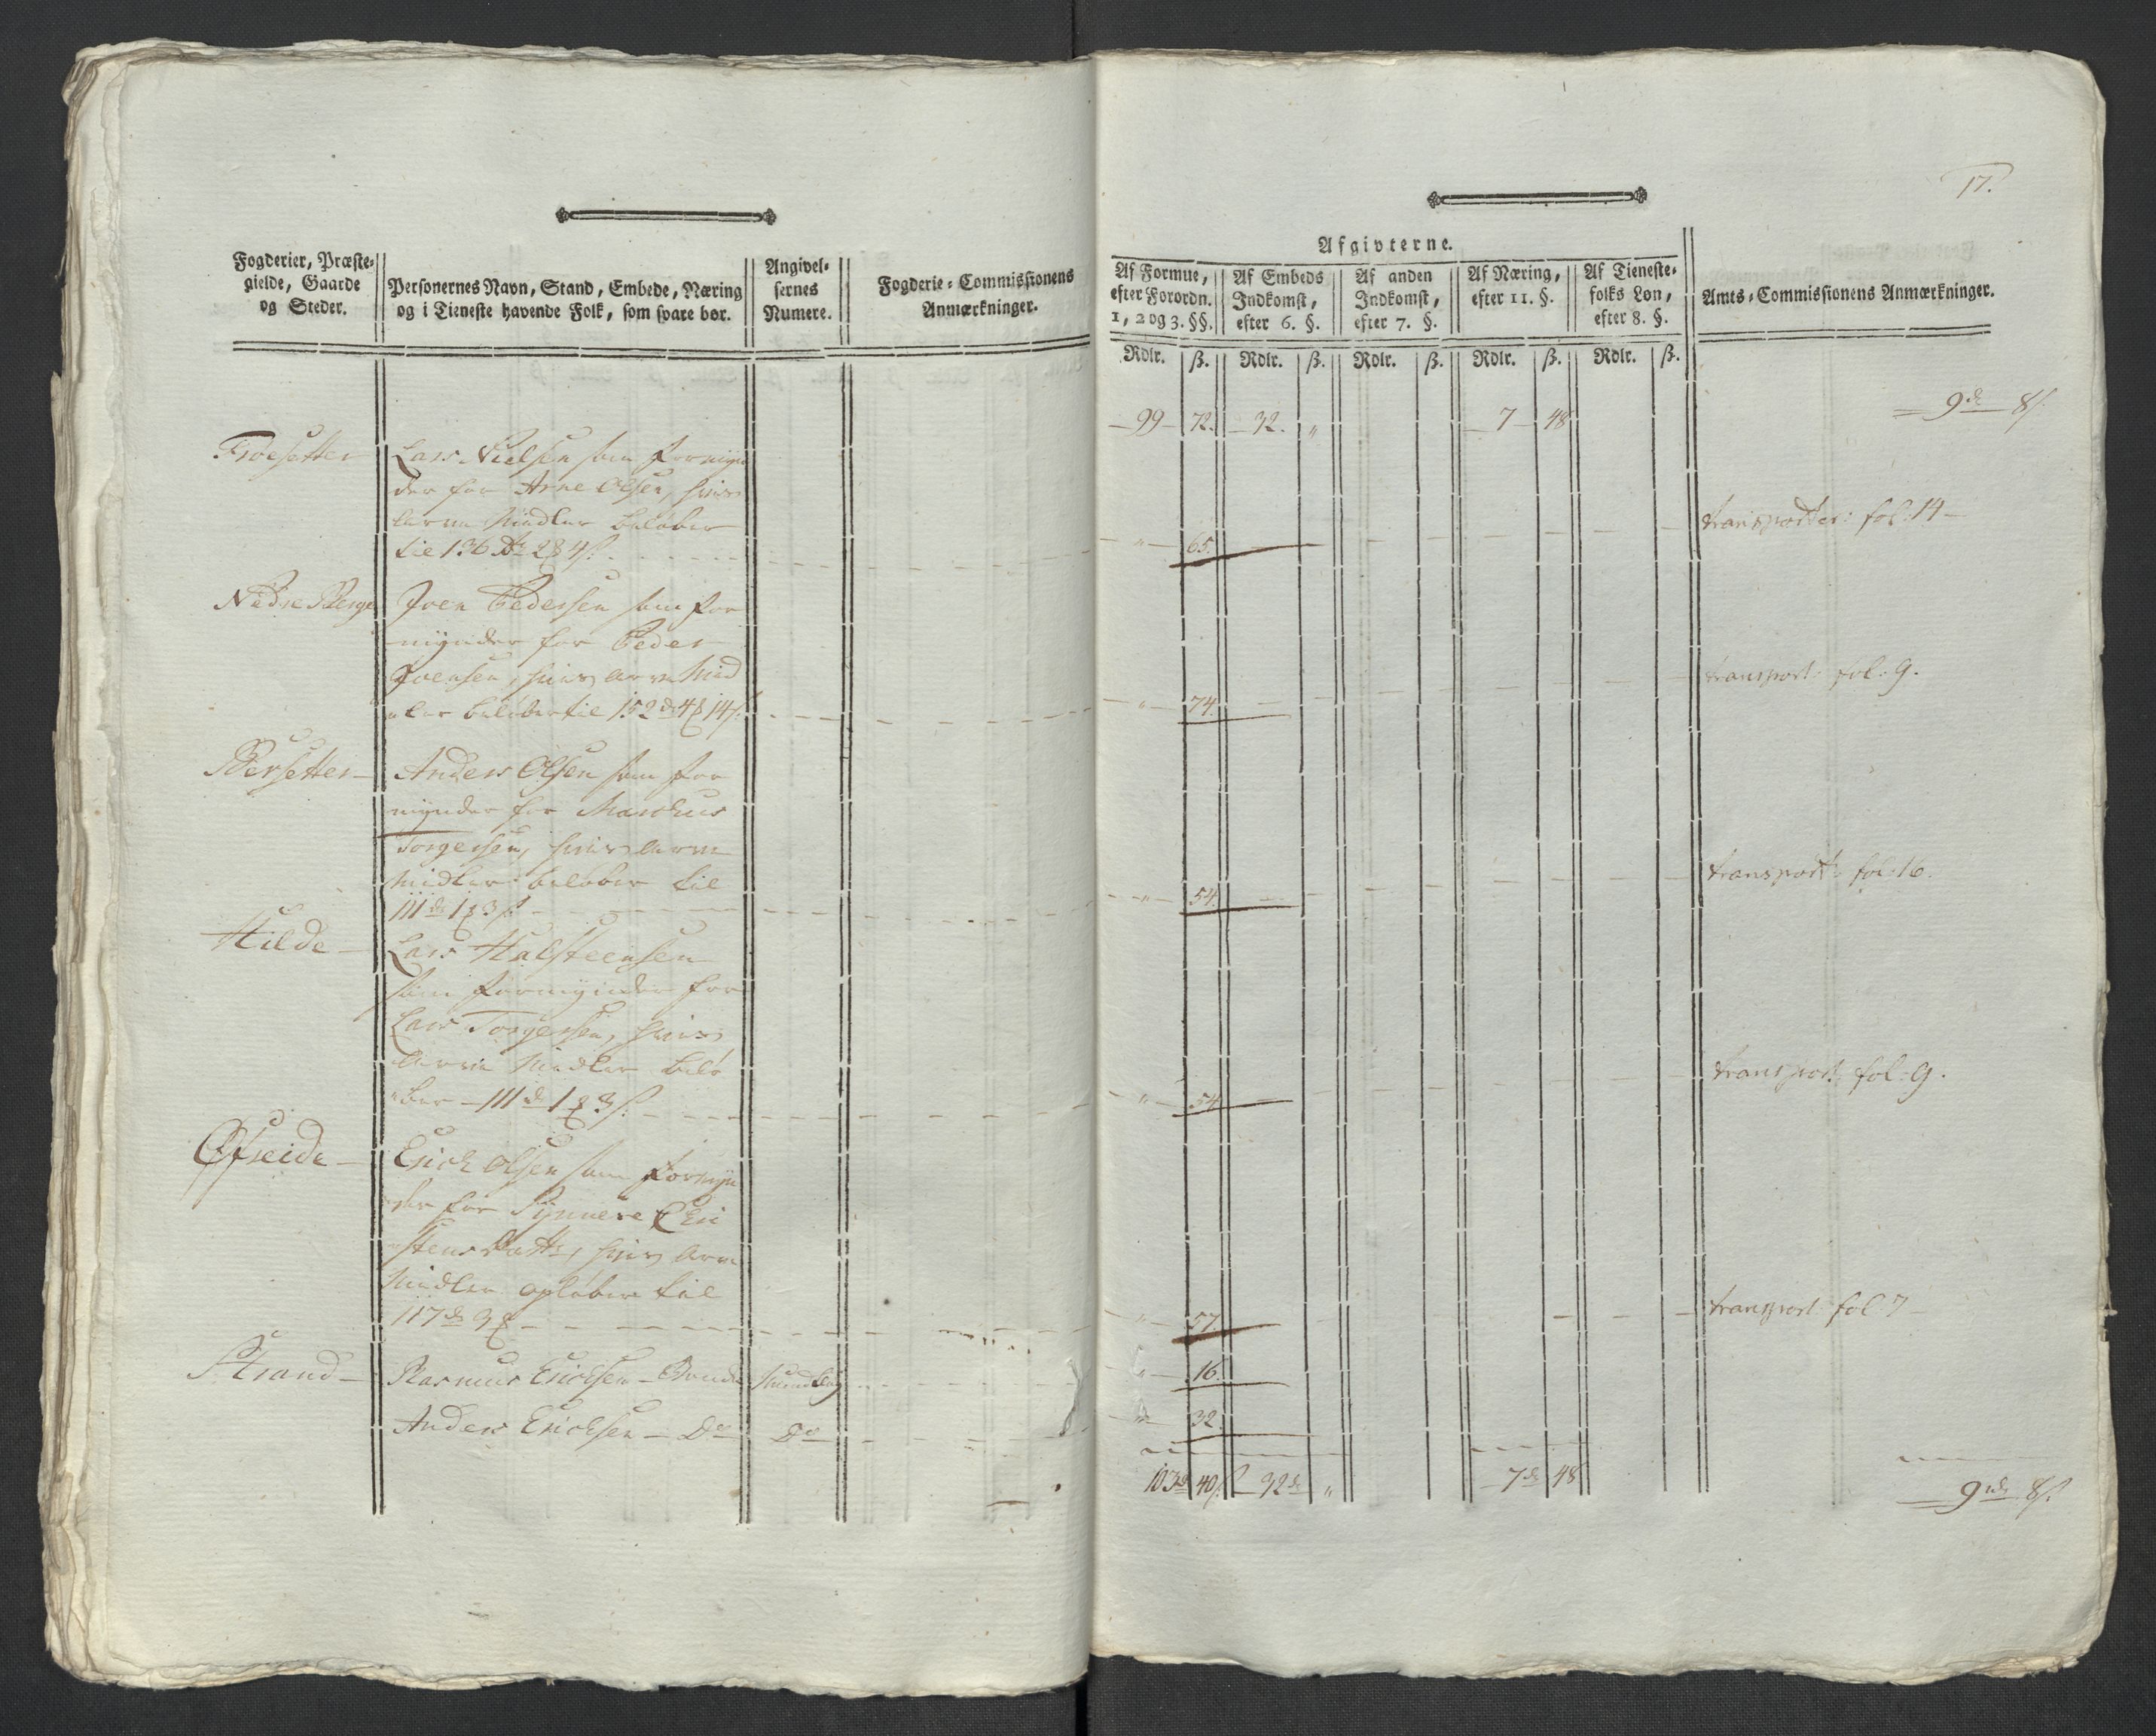 17.
Fogderier, Præste-
gielde, Gaarde
og Steder.
Personernes Navn, Stand, Embede, Næring
og i Tieneste havende Folk, som svare bør.
Angivel-
sernes
Numere.
Fogderie-Commissionens
Anmærkninger.
Afgivterne.
Af Formue,
efter Forordn.
1, 2 og 3. §§.
Af Embeds
Indkomst,
efter 6. §.
Af anden
Indkomst,
efter 7. §.
Af Næring,
efter 11. §.
Af Tieneste-
folks Løn,
efter 8. §.
Amts-Commissionens Anmærkninger.
Rdlr. ß. Rdlr. ß. Rdlr. ß. Rdlr. ß. Rdlr. ß.
99 72. 32. „ 7 48 9 8ß.
Lars Nielsen som formyn
der for Arne Olsen, hvis
arve Midler beløber
til 136 28 4ß. „ 65. fol: 14
Nedre Berge
Joen Pedersen som for
mynder for Peder
Joensen, hvis arve Mid
ler beløber til 152 4 14ß. „ 74. transport: fol: 9.
Bersetter
Anders Olsen som for
mynder for Marchus
Torgersen, hvis arve
Midler beløber til
111 1 3ß. „ 54. transport: fol: 16.
Hilde
Lars Halsteensen
som formynder for
Lars Torgersen, hvis
arve Midler belø
ber 111 1 3ß. „ 54 transport: fol: 9.
Erich Olsen som formyn
der for Synneve
hvis arve
Midler opløber til
117 3 „ 57. transport fol 7
Strand
Rasmus Erichsen Bonde Mundtlig „ 16.
Anders Erichsen Do Do „ 32.
103 40ß 32 „ 7 48 9 8ß.